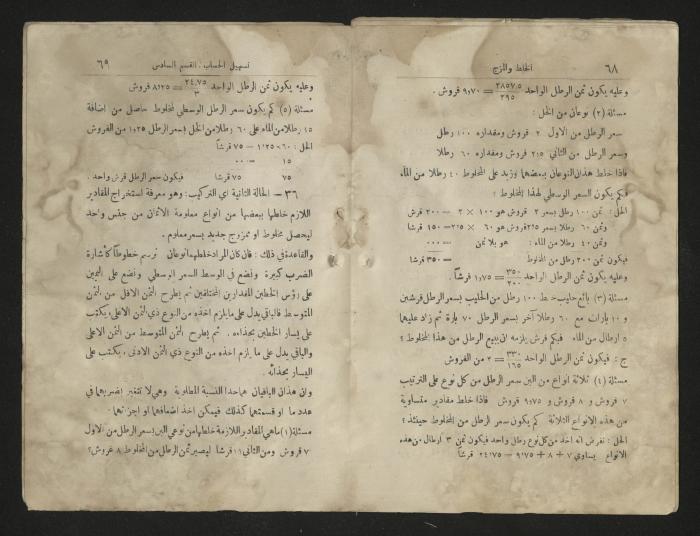 ٦٨ الخلط والمزج
وعليه يكون ثمن الرطل الواحد ٢٨٥٧٫٥/٢٩٥ = ٩٫٦٧٠ فروش .
مسئلة (٢) نوعان من الخل :
سعر الرطل من الاول ٢ فروش ومقداره ١٠٠ رطل
وسعر الرطل من الثاني ٢٫٥ فروش ومقداره ٦٠ رطلا
فاذا خلط هذان النوعان ببعضهما وزيد على المخلوط ٤٠ رطلا من الماء
فكم يكون السعر الوسطي لهذا المخلوط ؟
الحل : ثمن ١٠٠ رطل بسعر ٢ فروش هو ١٠٠ × ٢ = ٢٠٠ قرش
وثمن ٦٠ رطلا بسعر ٢٫٥ فروش هو ٦٠ × ٢٫٥ = ١٥٠ قرشا
وثمن ٤٠ رطلا من الماء : هو بلا ثمن = ٠٠٠
فيكون ثمن ٢٠٠ رطل من المخلوط = ٣٥٠ قرشا
وعليه يكون ثمن الرطل الواحد ٣٥٠/٢٠٠ = ١٫٧٥ قرشاً .
مسئلة (٣) بائع حليب خلط ١٠٠ رطل من الحليب بسعر الرطل قرشين
و ١٠ بارات مع ٦٠ رطلا آخر بسعر الرطل ٧٠ بارة ثم زاد عليهما
٥ ارطال من الماء فبكم قرش يلزمه ان يبيع الرطل من هذا المخلوط ؟
ج : فيكون ثمن الرطل الواحد ٣٣٠/١٦٥ = ٢ من القروش
مسئلة (٤) ثلاثة انواع من البن سعر الرطل من كل نوع على الترتيب
٧ فروش و ٨ فروش و ٩٫٧٥ فروش فاذا خلط مقادير متساوية
من هذه الانواع الثلاثة كم يكون سعر الرطل من المخلوط حينئذ ؟
الحل : نفرض انه اخذ من كل نوع رطل واحد فيكون ثمن ٣ ارطال من هذه
الانواع يساوي ٧ + ٨ + ٩٫٧٥ = ٢٤٫٧٥ قرشاً
تسهيل الحساب . القسم السادس ٦٩
وعليه يكون ثمن الرطل الواحد ٢٤٫٧٥/٣ = ٨٫٢٥ فروش
مسئلة (٥) كم يكون سعر الرطل الوسطي لمخلوط حاصل من اضافة
١٥ رطلا من الماء على ٦٠ رطلا من الخل بسعر الرطل ١٫٢٥ من القروش
الحل : ٦٠ × ١٫٢٥ = ٧٥ قرشاً
١٥ = ٠٠٠
٧٥ ٧٥ قرشا فيكون سعر الرطل قرش واحد .
٣٦ – الحالة الثانية اي التركيب : وهو معرفة استخراج المقادير
اللازم خلطها ببعضها من انواع معلومة الاثمان من جنس واحد
ليحصل مخلوط او ممزوج جديد بسعر معلوم .
والقاعدة في ذلك : فان كان المراد خلطهما نوعان نرسم خطوطاً كاشارة
الضرب كبيرة ونضع في الوسط السعر الوسطي ونضع على اليمين
على رؤس الخطين المقدارين المختلفين ثم يطرح الثمن الاقل من الثمن
المتوسط فالباقي يدل على ما يلزم اخذه من النوع ذي الثمن الاعلى ويكتب
على يسار الخطين بحذاءه . ثم يطرح الثمن المتوسط من الثمن الاعلى
والباقي يدل على ما يلزم اخذه من النوع ذي الثمن الادنى ويكتب على
اليسار بحذائه .
وان هذان الباقيان هما حدا النسبة المطلوبة وهي لا تتغير بضربهما في
عدد ما او قسمتهما كذلك فيمكن اخذ اضعافهما او اجزائهما .
مسئلة (١) ما هي المقادير اللازمة خلطها من نوعي البن بسعر الرطل من الاول
٧ قروش ومن الثاني ١١ قرشا ليصير ثمن الرطل من المخلوط ٨ غروش ؟